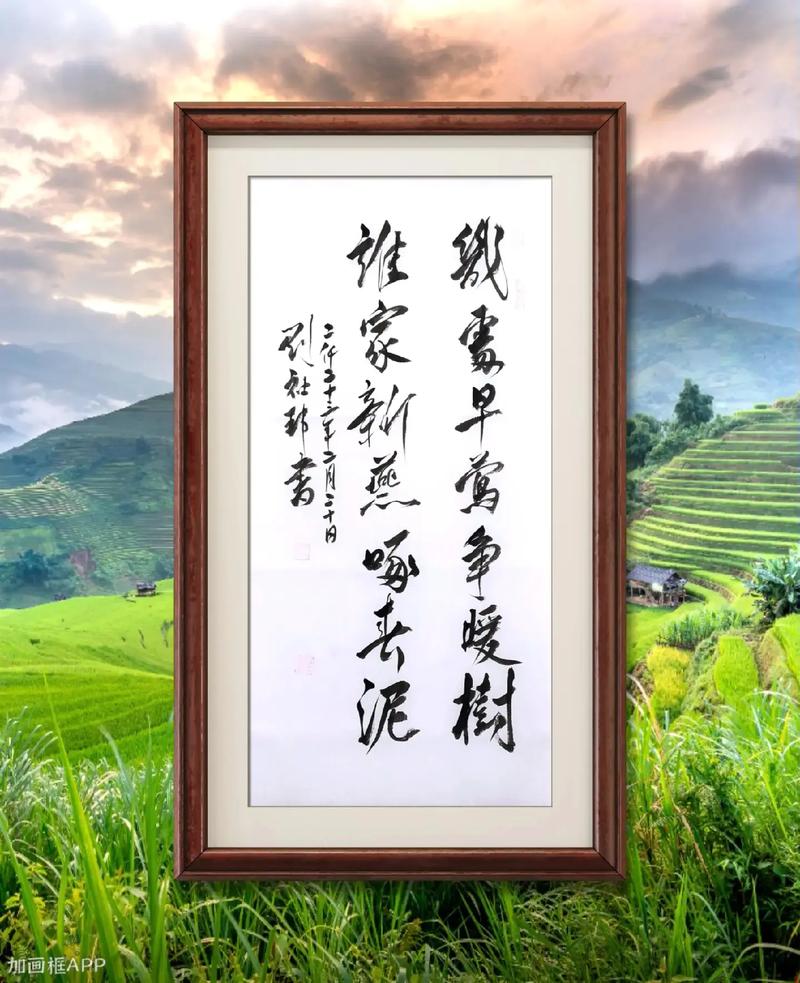 幾處早鶯争暖樹
誰家新燕啄春泥
二仟二十三年二月二十日
劉社邦書
加画框APP